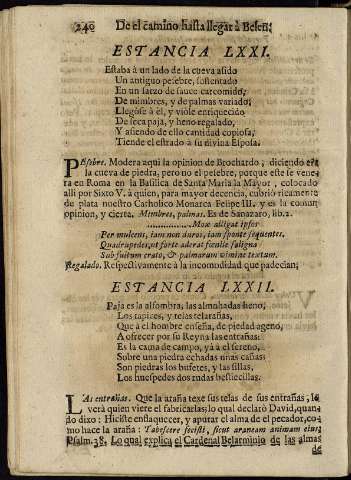 240 De el camino hasta llegar à Belen:
ESTANCIA LXXI.
Estaba à un lado de la cueva asido
Un antiguo pesebre, sustentado
En un sarzo de sauce carcomido,
De mimbres, y de palmas variado;
Llegòse à èl, y viole enriquecido
De seca paja, y heno regalado,
Y asiendo de ello cantidad copiosa,
Tiende el estrado à su divina Esposa.
PEsebre. Modera aqui la opinion de Brochardo, diciendo
la cueva de piedra, pero no el pesebre, porque este se vene-
ra en Roma en la Basilica de Santa Maria la Mayor, colocado
alli por Sixto V. à quien, para mayor decencia, cubriò ricamente
de plata nuestro Catholico Monarca Felipe III. y es la comun
opinion, y cierta. Membres, palmas. Es de Sanazaro, lib. 2.
................Mox alligat ipsos
Per mulcens, iam non duros, iam sponte sequentes.
Quadrupedes, at forte aderat ficulis saligna
Sub suitum crate, & palmarum vimine textum.
Regalado. Respectivamente à la incomodidad que padecian;
ESTANCIA LXXII.
Paja es la alfombra, las almohadas heno,
Los tapices, y telas telarañas,
Que à el hombre enseña, de piedad ageno,
A ofrecer por su Reyna las entrañas:
Es la cama de campo, yà à el sereno,
Sobre una piedra echadas unas cañas;
Son piedras los bufetes, y las sillas,
Los huespedes dos rudas bestiecillas.
LAs entrañas. Que la araña texe sus telas de sus entrañas, lo
verà quien viere el fabricarlas; lo qual declarò David, quan-
do dixo: Hiciste enflaquecer, y apurar el alma de el pecador, co-
mo hace la araña: Tabescere fecisti, sicut araneam animam eius.
Psalm. 38. Lo qual explica el Cardenal Belarminio de las almas
de